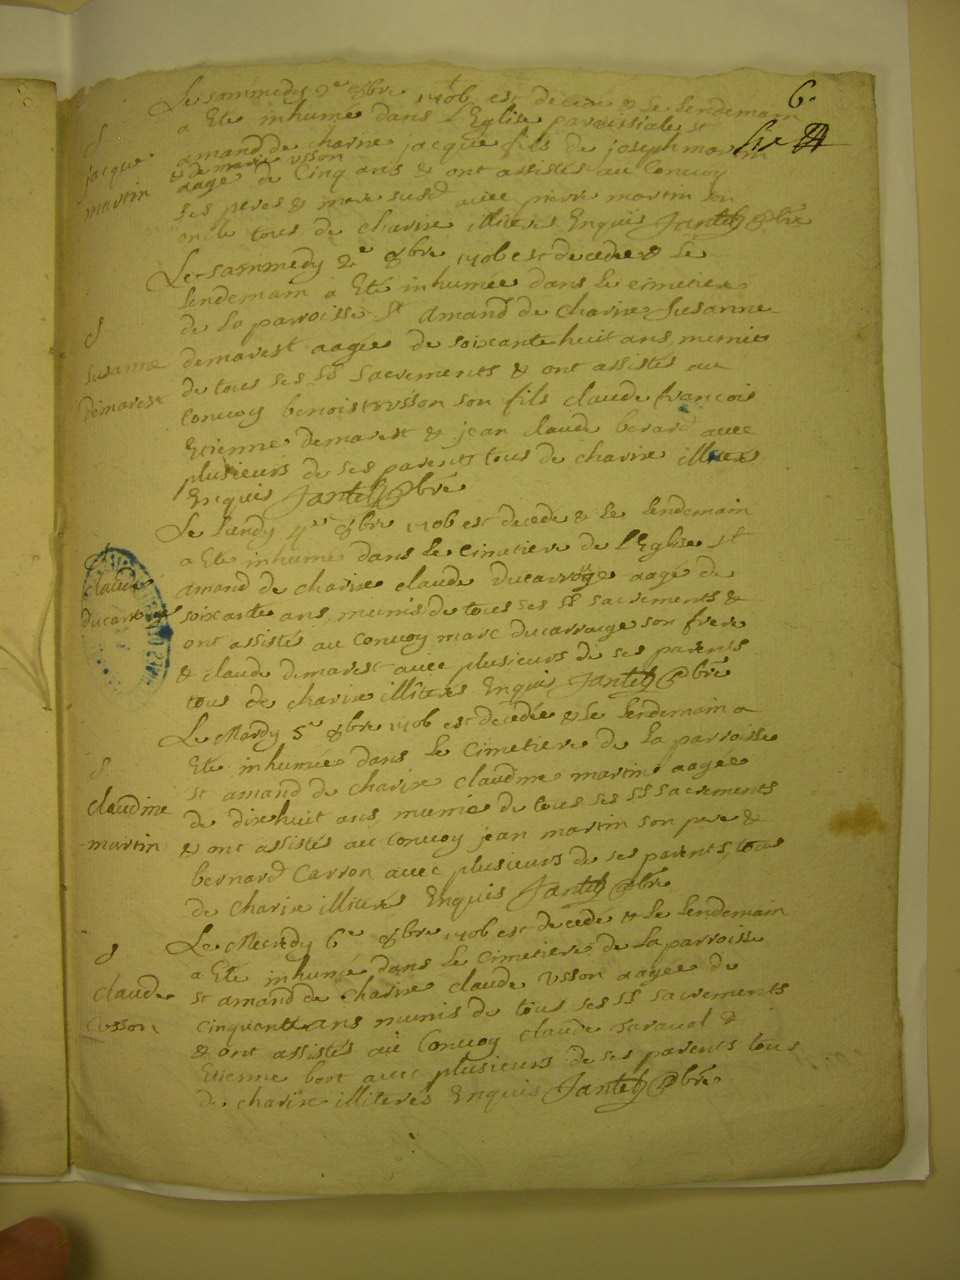 6.
Le sammedy 2e 8bre 1706 est decede & le lendemain
a Eté inhumé dans l'Eglise parroissiale st
amand de charixe jacque fils de joseph martin
& de marie usson
aagé de Cinq ans & ont assistés au Convoy
ses peres & mere susd avec pierre martin son
oncle tous de charixe illiteres Enquis Jantet pbre
S
jacque
martin
Le sammedy 2e 8bre 1706 est decedée & le
lendemain a Eté inhumée dans le cimetiere
de la parroisse st Amand de charixe Susanne
demarest aagée de soixante huit ans, munie
de tous ses sts sacrements & ont assistés au
Convoy benoist usson son fils claude françois
Etienne demarest & jean claude berard avec
plusieurs de ses parents tous de charixe illiteres
Enquis Jantet pbre
S
susanne
demarest
Le Lundy 4e 8bre 1706 est decede & le lendemain
a Eté inhumé dans le cimetiere de l'Eglise st
amand de charixe claude ducarrouge aagé de
soixante ans, munis de tous ses sts sacrements &
ont assistés au Convoy marc ducarrouge son frere
& claude demarest avec plusieurs de ses parents
tous de charixe illiteres Enquis Jantet pbre
claude
ducarrouge
Le Mardy 5e 8bre 1706 est decedée & le lendemain a
Eté inhumée dans le cimetiere de la parroisse
st amand de charixe claudine martin aagée
de dix huit ans munie de tous ses sts sacrements
& ont assistés au Convoy jean martin son pere &
bernard Carron avec plusieurs de ses parents, tous
de charixe illiteres Enquis Jantet pbre
S
claudine
martin
Le Mecredy 6e 8bre 1706 est decede & le lendemain
a Eté inhumé dans le cimetiere de la parroisse
st amand de charixe claude usson aagée de
cinquante ans munis de tous ses sts sacrements
& ont assistés au Convoy claude &
Etienne bort avec plusieurs de ses parents tous
de charixe illiteres Enquis Jantet pbre
S
claude
usson